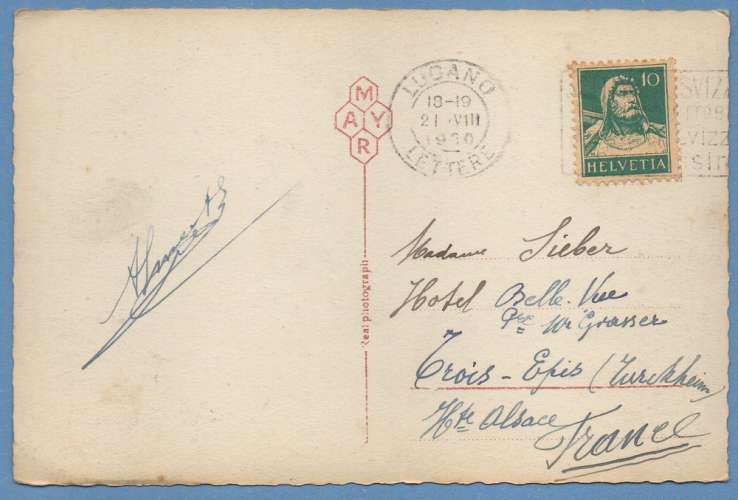 LUGANO
18-19
21 VIII
1930
LETTERE
10
HELVETIA
SVIZZ
VIZZ
SIT
M
A Y
R
Real photograph
Madame Sieber
Hotel Belle-Vue
Mr Grasser
Trois-Epis (Turckheim)
Hte Alsace
France